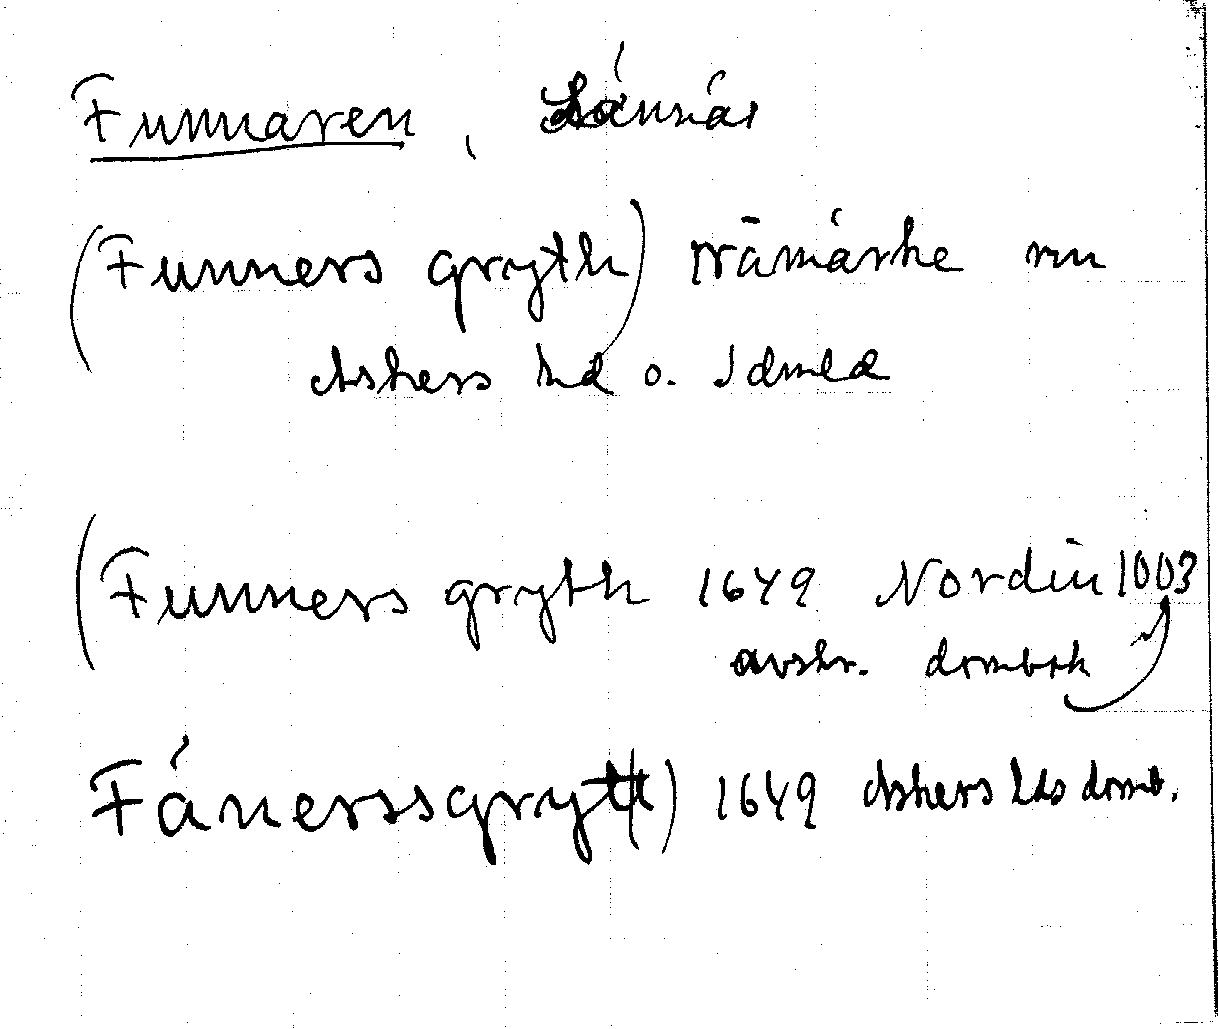 Funnaren, Lännäs
(Funners gryth) råmärke mn
Askers hd o. Idmed
(Funners gryth 1649 Nordin 1003
avskr. dombok
Fánerssgrytt) 1649 Askers hds domb.